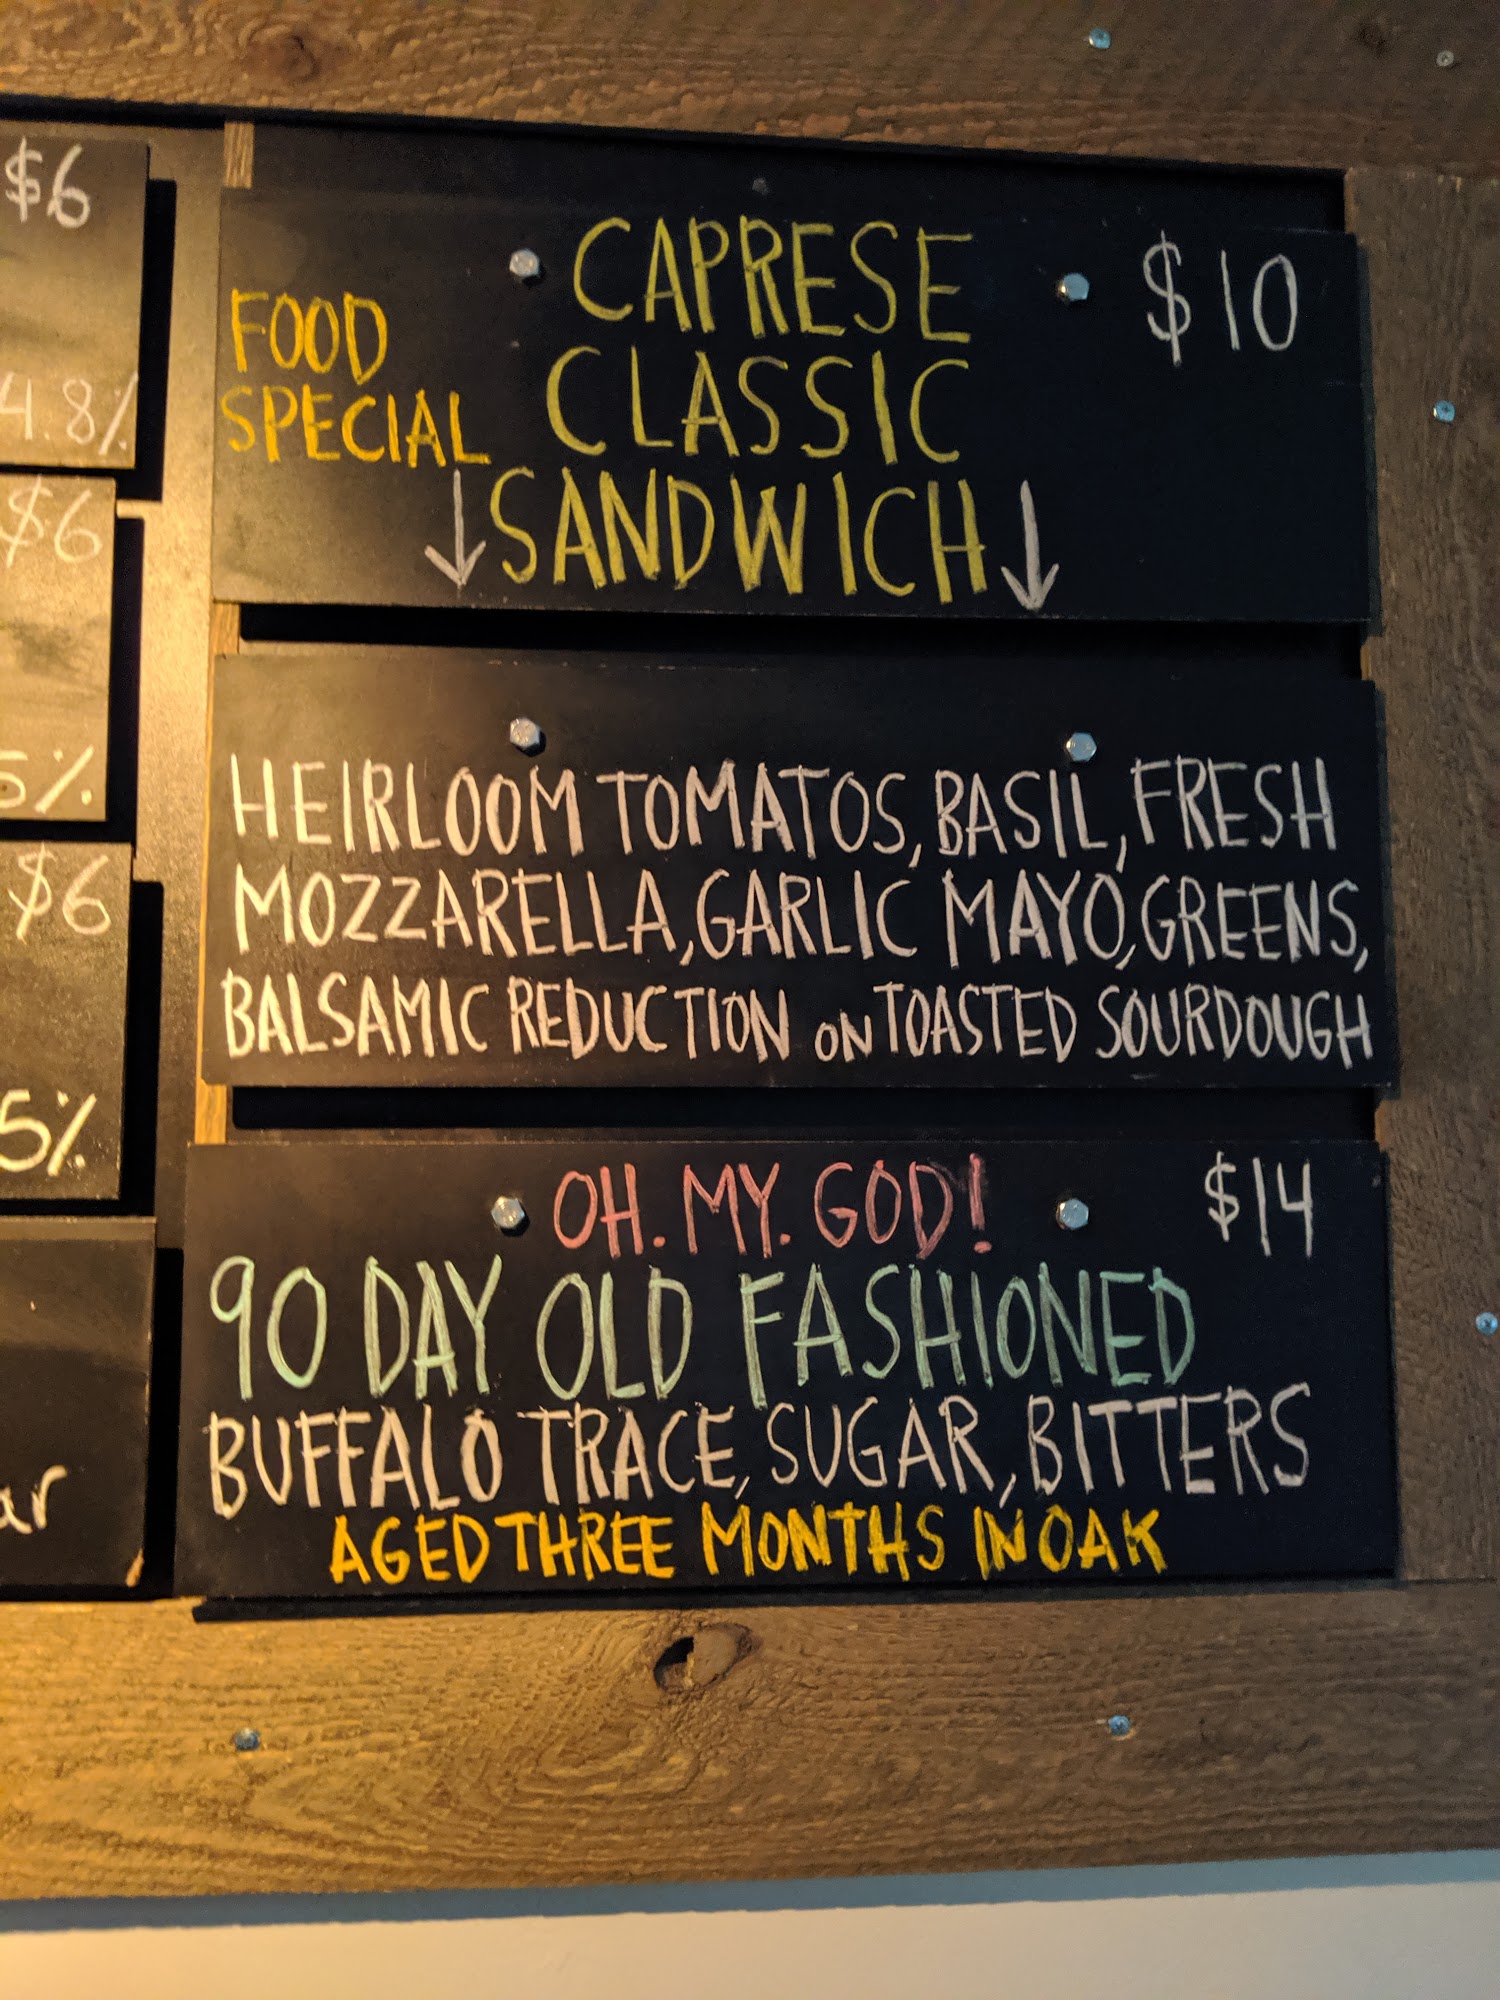 $6
4.8%
$6
5%
$6
5%
ar
FOOD
SPECIAL
CAPRESE
CLASSIC
SANDWICH
$10
HEIRLOOM TOMATOS, BASIL, FRESH
MOZZARELLA, GARLIC MAYO, GREENS,
BALSAMIC REDUCTION ON TOASTED SOURDOUGH
OH. MY. GOD!
$14
90 DAY OLD FASHIONED
BUFFALO TRACE, SUGAR, BITTERS
AGED THREE MONTHS IN OAK